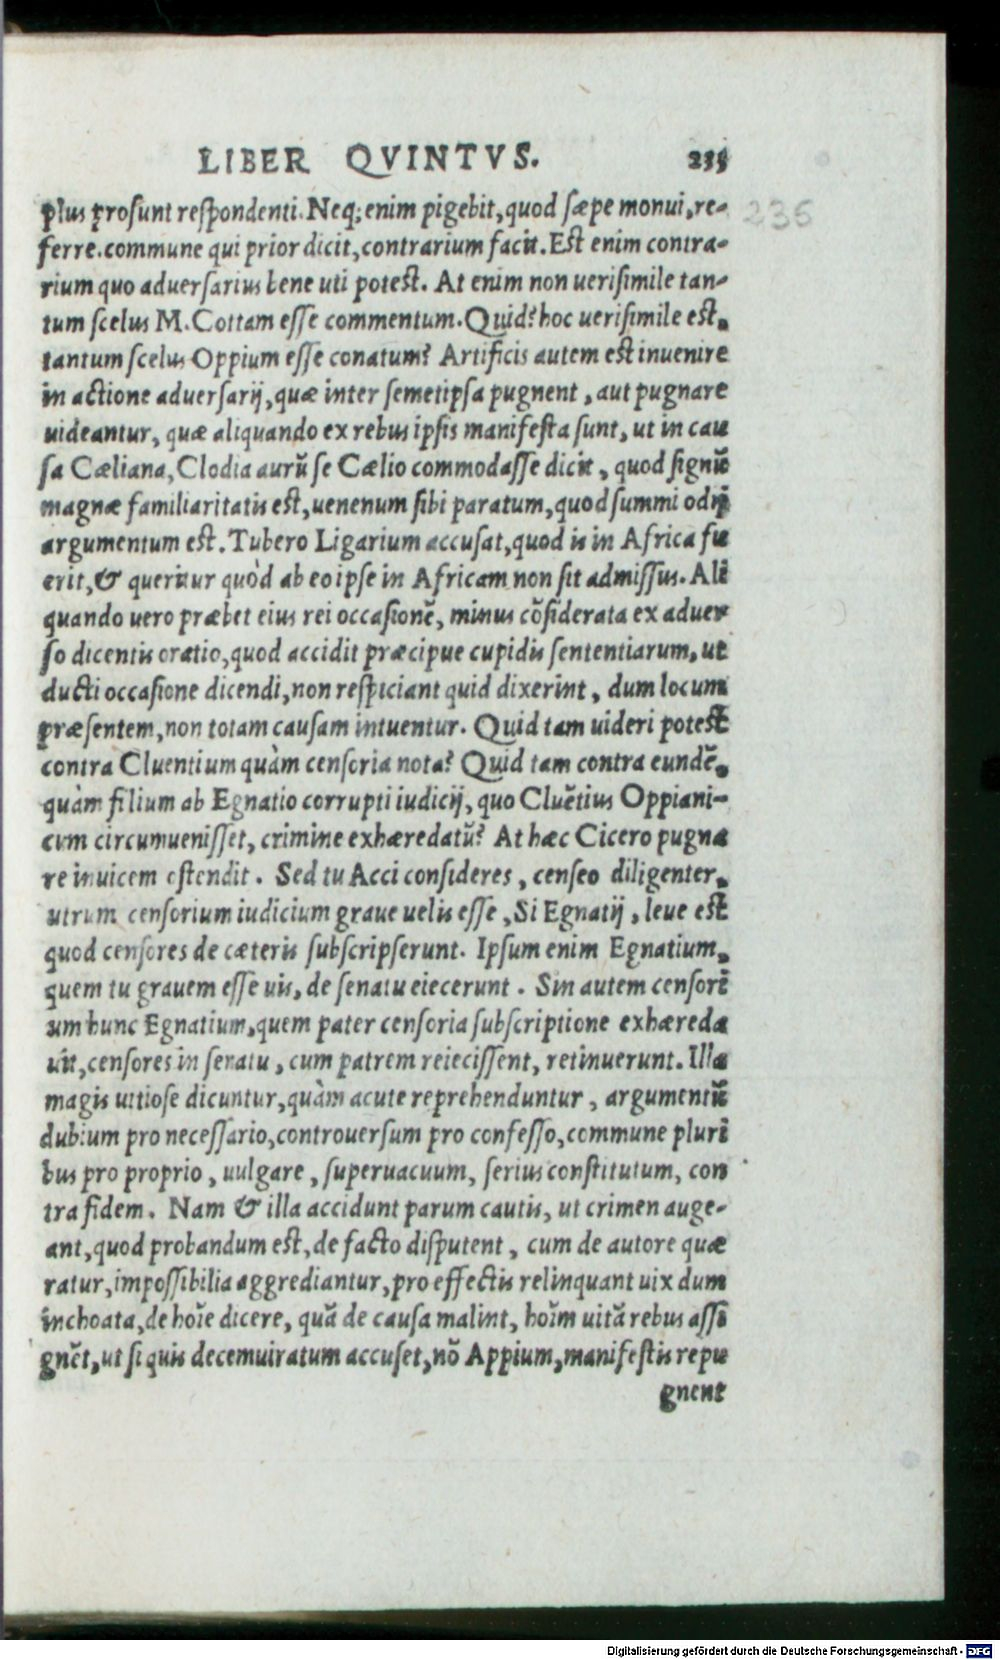 LIBER QVINTVS. 235
236
plus prosunt respondenti. Neq; enim pigebit, quod sæpe monui, re-
ferre. commune qui prior dicit, contrarium facit. Est enim contra-
rium quo aduersarius bene uti potest. At enim non uerisimile tan-
tum scelus M. Cottam esse commentum. Quid? hoc uerisimile est,
tantum scelus Oppium esse conatum? Artificis autem est inuenire
in actione aduersarij, quæ inter semetipsa pugnent, aut pugnare
uideantur, quæ aliquando ex rebus ipsis manifesta sunt, ut in cau
sa Cæliana, Clodia aurũ se Cælio commodasse dicit, quod signũ
magnæ familiaritatis est, uenenum sibi paratum, quod summi odij
argumentum est. Tubero Ligarium accusat, quod is in Africa fu
erit, & queritur quòd ab eo ipse in Africam non sit admissus. Ali
quando uero præbet eius rei occasionẽ, minus cõsiderata ex aduer
so dicentis oratio, quod accidit præcipue cupidis sententiarum, ut
ducti occasione dicendi, non respiciant quid dixerint, dum locum
præsentem, non totam causam intuentur. Quid tam uideri potest
contra Cluentium quàm censoria nota? Quid tam contra eundẽ,
quàm filium ab Egnatio corrupti iudicij, quo Cluẽtius Oppiani-
cum circumuenisset, crimine exhæredatũ? At hæc Cicero pugna
re inuicem ostendit. Sed tu Acci consideres, censeo diligenter,
utrum censorium iudicium graue uelis esse, Si Egnatij, leue est
quod censores de cæteris subscripserunt. Ipsum enim Egnatium,
quem tu grauem esse uis, de senatu eiecerunt. Sin autem censori
um hunc Egnatium, quem pater censoria subscriptione exhæreda
uit, censores in senatu, cum patrem reiecissent, retinuerunt. Illa
magis uitiose dicuntur, quàm acute reprehenduntur, argumentũ
dubium pro necessario, controuersum pro confesso, commune pluri
bus pro proprio, uulgare, superuacuum, serius constitutum, con
tra fidem. Nam & illa accidunt parum cautis, ut crimen auge-
ant, quod probandum est, de facto disputent, cum de autore quæ
ratur, impossibilia aggrediantur, pro effectis relinquant uix dum
inchoata, de hoĩe dicere, quã de causa malint, hoĩm uitã rebus assi
gnẽt, ut si quis decemuiratum accuset, nõ Appium, manifestis repu
gnent
Digitalisierung gefördert durch die Deutsche Forschungsgemeinschaft - DFG